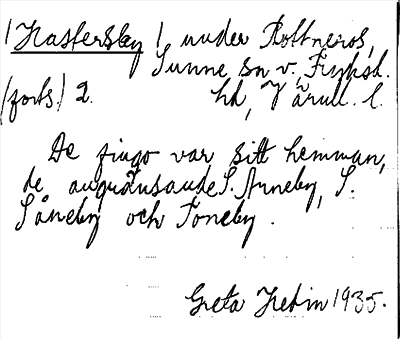 /Kastersby/ under Rottneros,
Sunne sn v. Fryksd.
(forts.) 2. hd, Värml. l.
De fingo var sitt hemman,
de angränsande S. Arneby, S.
Såneby och Toneby.
Greta Hedin 1935.